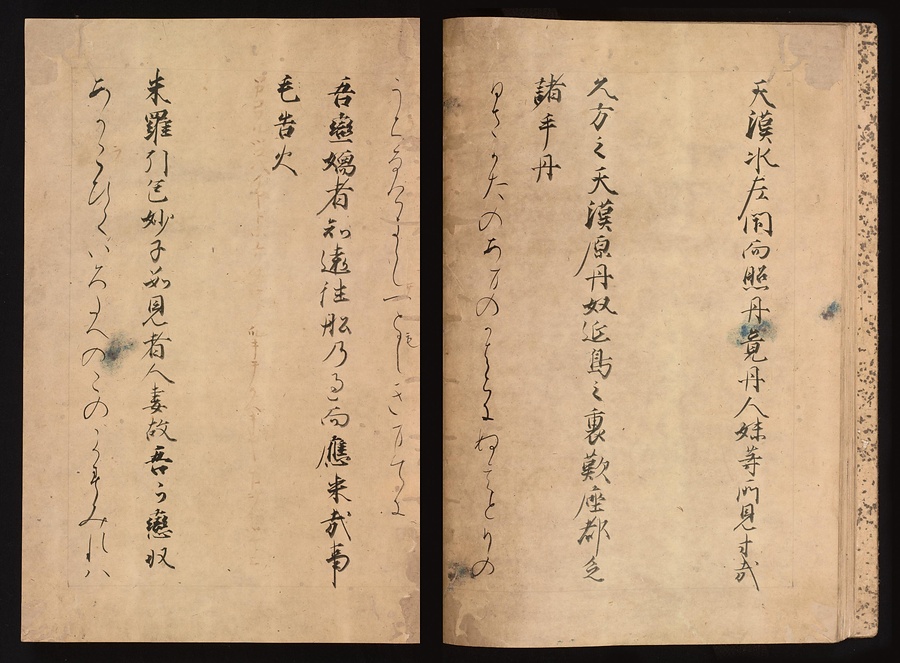 天漠水左閇而照丹竟丹人妹等所見寸哉
久方之天漠原丹奴延鳥之裏歎座都乞
諸手丹
ひさかたのあまのかはらにぬえとりの
うらなけましつともしきまてに
吾戀嬬者知遠往船乃過而應来哉事
毛告火
朱羅引色妙子數見者人妻故吾可戀奴
あからひくいろたへのこのかすみれは